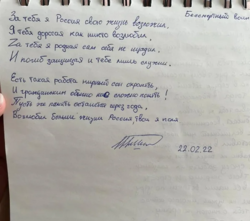 За тебя я Россия свою жизнь возложил.
Я тебя дорогая как никто возлюбил.
Zа тебя я родная сам себя не щадил.
И погиб защищая и тебе лишь служил.
Есть такая работа мирный сон охранять,
И гражданским обычно но сложно понять!
Пусть он понят останется через года,
Возлюбил больше жизни Россия твои я поля
22.02.22